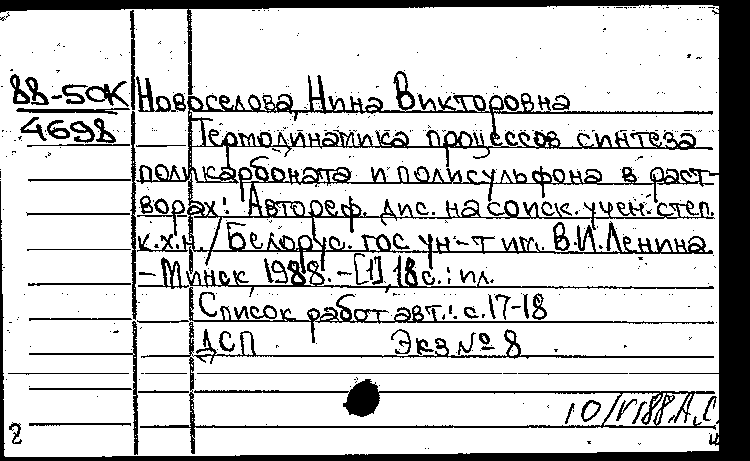 88-5СК Новоселова, Нина Викторовна
4698 Термодинамика процессов синтеза
поликарбоната и полисульфона в раст-
ворах: Автореф. дис. на соиск. учен. степ.
к.х.н. / Белорус. гос. ун-т им. В.И.Ленина.
– Минск, 1988. – [1], 18 с. : ил.
Список работ авт.: с. 17-18
ДСП Экз № 8
10/VI88 А.С.
2